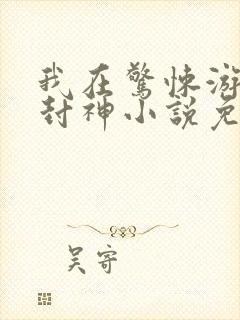 我在驚悚游
封神小說免
吴寄